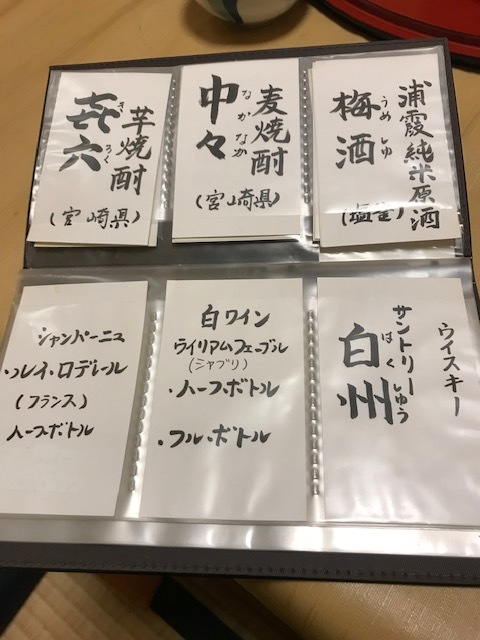 浦霞純米原酒
梅酒
うめしゅ
(塩釜)
麦焼酎
中々
なかなか
(宮崎県)
芋焼酎
㐂六
きろく
(宮崎県)
ウイスキー
サントリー
白州
はくしゅう
白ワイン
ウイリアムフェーブル
(シャブリ)
・ハーフ・ボトル
・フル・ボトル
シャンパーニュ
・ルイ・ロデレール
(フランス)
ハーフ・ボトル